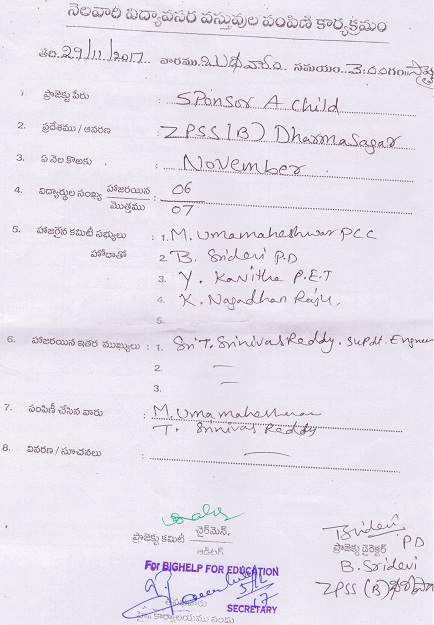 నెలవారి విద్యావసర వస్తువుల పంపిణి కార్యక్రమం
తేది. 29/11/2017 వారము బుధవారం సమయం 3:00గం
1. ప్రాజెక్టు పేరు : SPonsor A child
2. ప్రదేశము / ఆవరణ : ZPSS (B) Dharmasagar
3. ఏ నెల కొఱకు : November
4. విద్యార్థుల సంఖ్య హాజరయిన : 06
మొత్తము 07
5. హాజరైన కమిటీ సభ్యులు : 1. M. Umamaheshwar PCC
హోదాతో 2. B. Sridevi P.D
3. Y. Kavitha P.E.T
4. K. Nagadhan Raju,
5.
6. హాజరయిన ఇతర ముఖ్యులు : 1. Sri T. Srinivas Reddy. Supdt. Engineer
2. —
3. —
7. పంపిణీ చేసిన వారు : M. Umamaheshwar
T. Srinivas Reddy
8. వివరణ / సూచనలు : —
ప్రాజెక్టు కమిటీ చైర్‌మెన్. ప్రాజెక్టు డైరెక్టర్ PD
ఆడిటర్ B. Sridevi
For BIGHELP FOR EDUCATION ZPSS (B)
5/12
17
SECRETARY